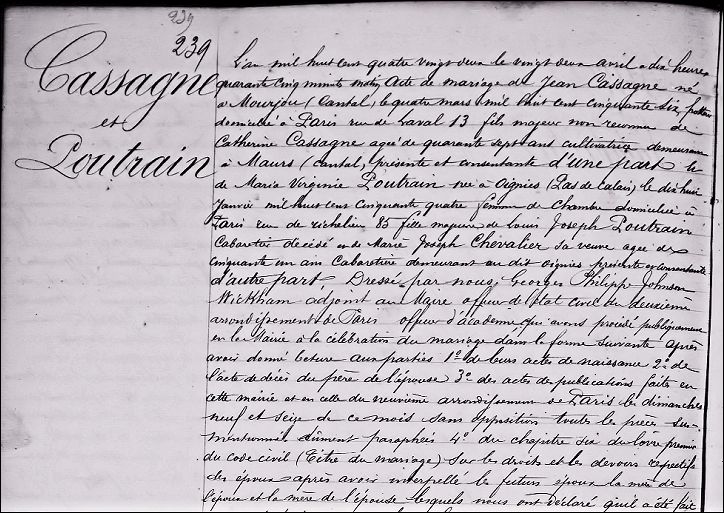 239
239
Cassagne
et
Poutrain
L'an mil huit cent quatre vingt deux le vingt deux avril à dix heures
quarante cinq minutes matin, Acte de mariage de Jean Cassagne né
à Mourjou (Cantal) le quatre mars mil huit cent cinquante six,
domicilié à Paris rue de Laval 13 fils majeur non reconnu de
Catherine Cassagne agée de quarante sept ans cultivatrice demeurant
à Maurs (Cantal) présente et consentante d'une part &
de Marie Virginie Poutrain née à Oignies (Pas de Calais) le dix huit
Janvier mil huit cent cinquante quatre femme de chambre domiciliée à
Paris rue de richelieu 85 fille majeure de Louis Joseph Poutrain
Cabaretier décédé et de Marie Joseph Chevalier sa veuve agée de
cinquante un ans Cabaretière demeurant au dit Oignies présente et consentante
d'autre part. Dressé par nous Georges Philipp Johnson
Wickham adjoint au Maire officier de l'état civil du deuxième
arrondissement de Paris officier d'académie qui avons procédé publiquement
en la Mairie à la célébration du mariage dans la forme suivante après
avoir donné lecture aux parties 1° de leurs actes de naissance 2° de
l'acte de décès du père de l'épouse 3° des actes de publications faites en
cette mairie et en celle du neuvième arrondissement de Paris les dimanches
neuf et seize de ce mois sans opposition toutes les pièces sus-
mentionnées dûment paraphées 4° du chapitre six du livre premier
du code civil (Titre du mariage) sur les droits et les devoirs respectifs
des époux après avoir interpellé les futurs époux la mère de
l'époux et la mère de l'épouse lesquels nous ont déclaré qu'il a été fait